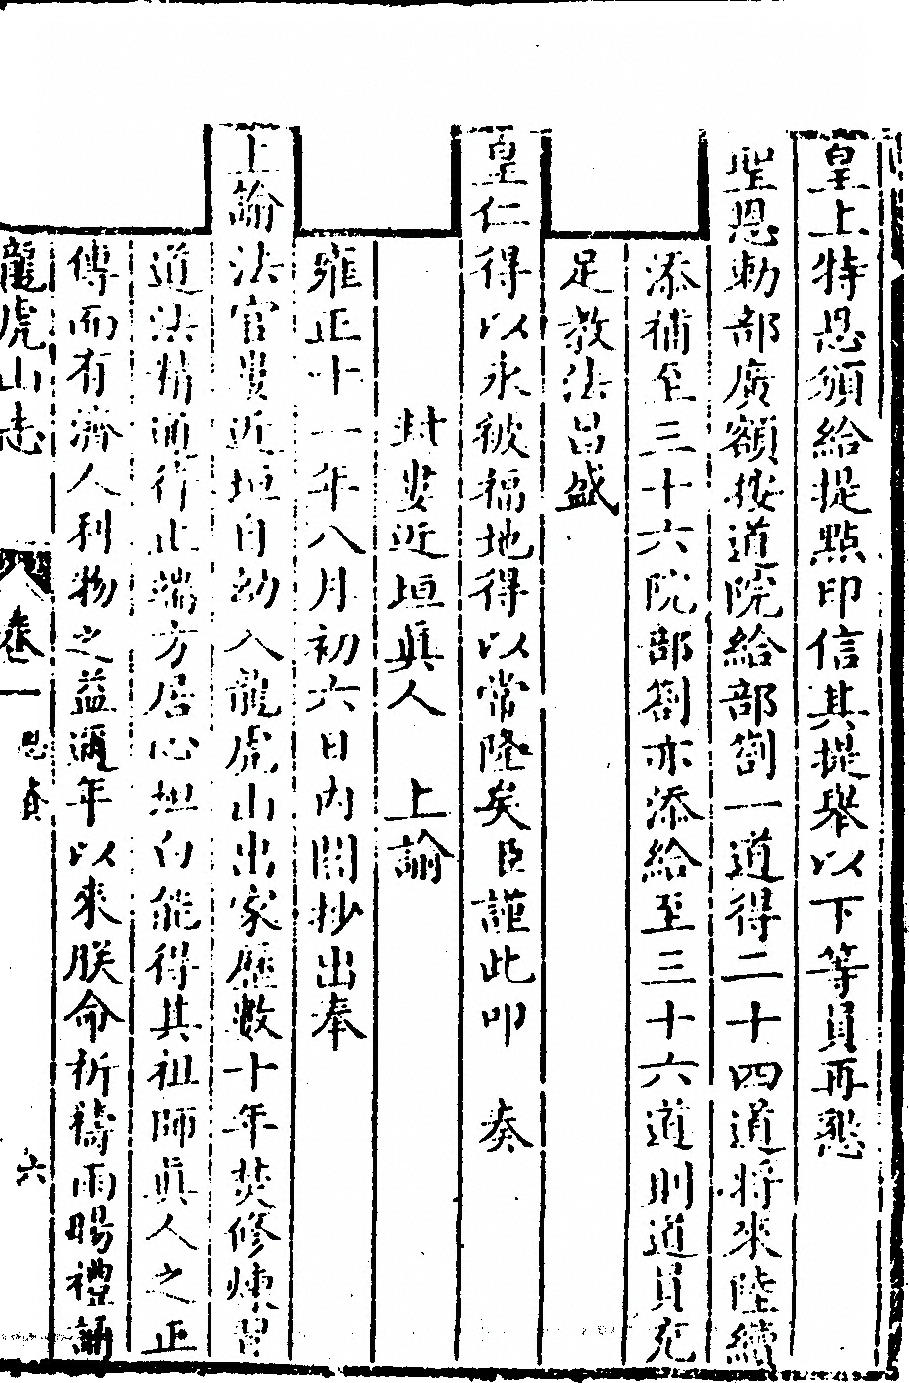 皇上特恩頒給提點印信其提舉以下等員再懇
聖恩勅部廣額按道院給部劄一道得二十四道將來陸續
添補至三十六院部劄亦添給至三十六道則道員充
足教法昌盛
皇仁得以永被福地得以常隆矣臣謹此叩　奏
封婁近垣眞人　上諭
雍正十一年八月初六日內閣抄出奉
上諭法官婁近垣自幼入龍虎山出家歷數十年焚修煉習
道法精通行止端方居心坦白能得其祖師眞人之正
傳而有濟人利物之益邇年以來朕命祈禱雨暘禮誦
龍虎山志　卷一　恩賚　六